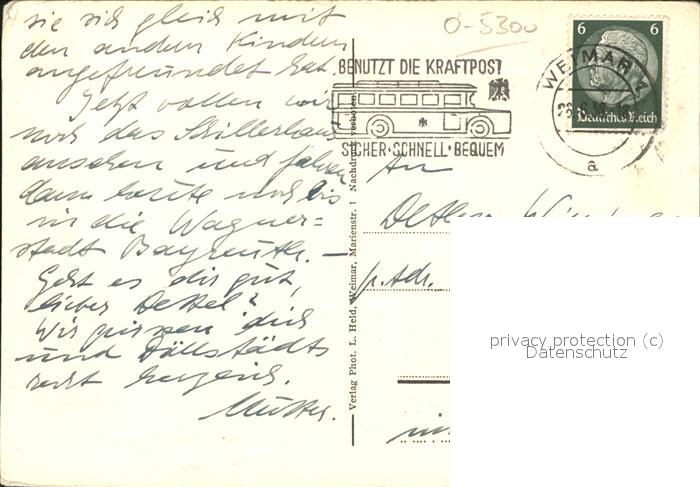 sie sich gleich mit
den andern Kindern
angefreundet hat.
Jetzt wollen wir
noch das Schillerhaus
ansehen und fahren
dann heute noch bis
in die Wagner=
stadt Bayreuth. —
Geht es dir gut,
lieber Dettel?
Wir grüssen dich
und Döllstädts
recht herzlich.
Mutter.
O-5300
BENUTZT DIE KRAFTPOST
SICHER · SCHNELL · BEQUEM
WEIMAR 1
a
6 6
Deutsches Reich
Verlag Phot. L. Held, Weimar, Marienstr. 1 Nachdruck verboten.
An
p. Adr.
privacy protection (c)
Datenschutz